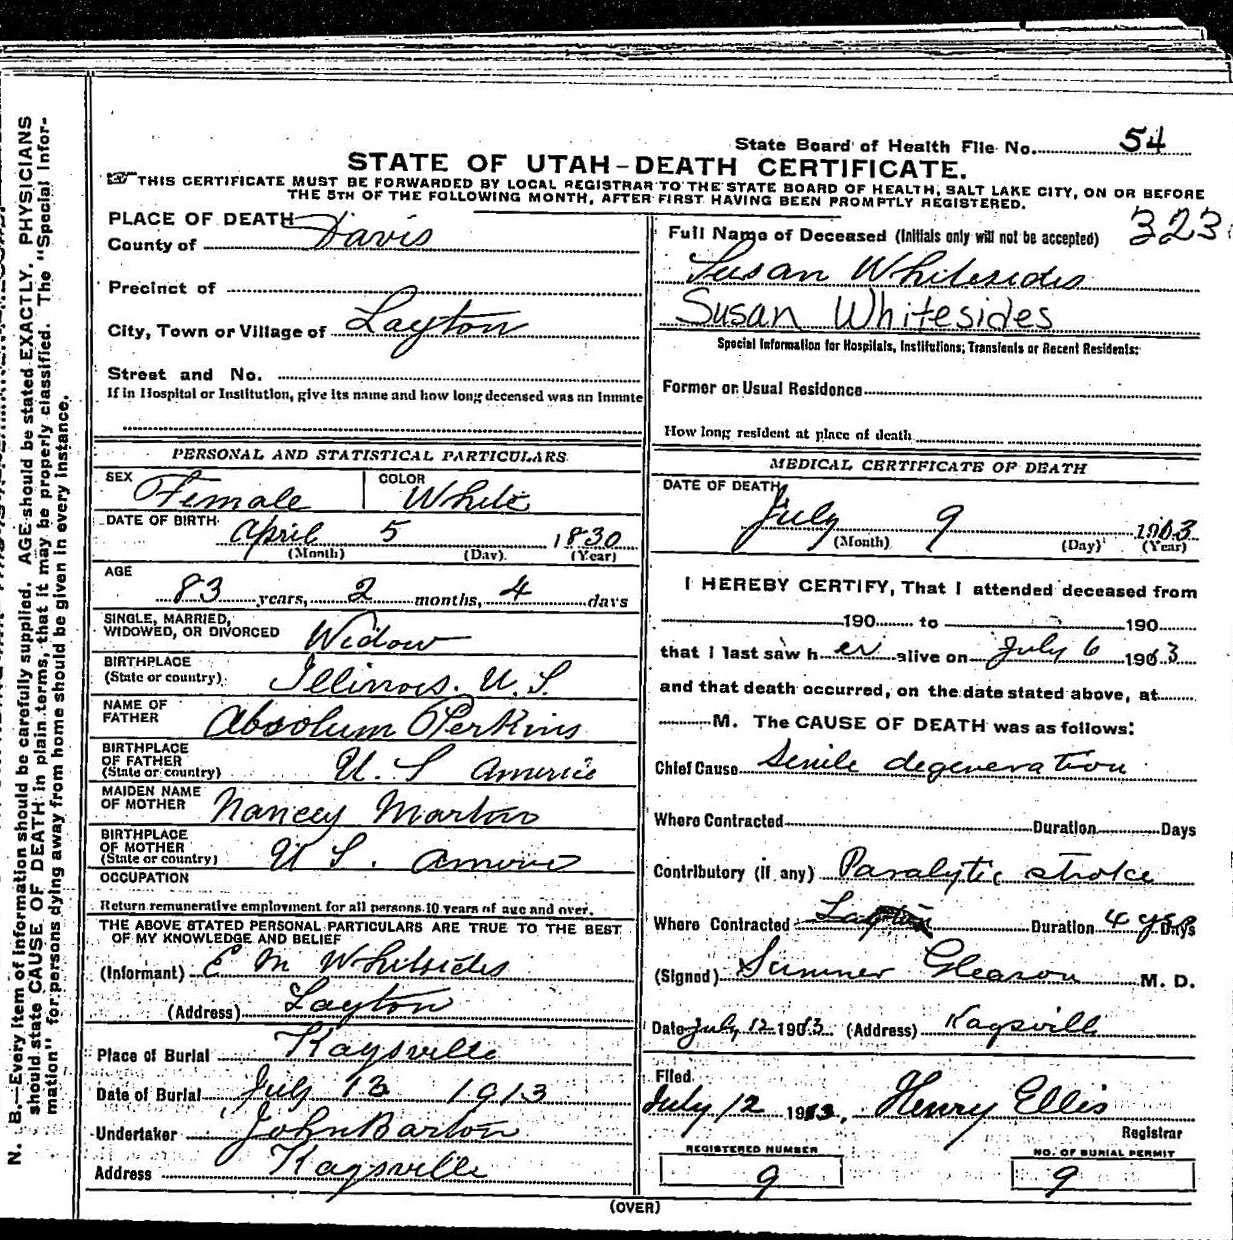 State Board of Health File No. 54
STATE OF UTAH-DEATH CERTIFICATE.
THIS CERTIFICATE MUST BE FORWARDED BY LOCAL REGISTRAR TO THE STATE BOARD OF HEALTH, SALT LAKE CITY, ON OR BEFORE
THE 5TH OF THE FOLLOWING MONTH, AFTER FIRST HAVING BEEN PROMPTLY REGISTERED.
PLACE OF DEATH
County of Davis
Precinct of
City, Town or Village of Layton
Street and No.
If in Hospital or Institution, give its name and how long deceased was an inmate
PERSONAL AND STATISTICAL PARTICULARS
SEX Female COLOR White
DATE OF BIRTH April 5 1830
(Month) (Day) (Year)
AGE
83 years, 2 months, 4 days
SINGLE, MARRIED,
WIDOWED, OR DIVORCED Widow
BIRTHPLACE
(State or country) Illinois. U. S.
NAME OF
FATHER Absolum Perkins
BIRTHPLACE
OF FATHER
(State or country) U. S America
MAIDEN NAME
OF MOTHER Nancey Martin
BIRTHPLACE
OF MOTHER
(State or country) U S. America
OCCUPATION
Return remunerative employment for all persons 10 years of age and over.
THE ABOVE STATED PERSONAL PARTICULARS ARE TRUE TO THE BEST
OF MY KNOWLEDGE AND BELIEF
(Informant) E M Whitesides
(Address) Layton
Place of Burial Kaysville
Date of Burial July 13 1913
Undertaker John Barton
Address Kaysville
323
Full Name of Deceased (Initials only will not be accepted)
Susan Whitesides
Susan Whitesides
Special Information for Hospitals, Institutions; Transients or Recent Residents:
Former or Usual Residence
How long resident at place of death
MEDICAL CERTIFICATE OF DEATH
DATE OF DEATH
July 9 1913
(Month) (Day) (Year)
I HEREBY CERTIFY, That I attended deceased from
190 to 190
that I last saw her alive on July 6 1913
and that death occurred, on the date stated above, at
M. The CAUSE OF DEATH was as follows:
Chief Cause Senile degeneration
Where Contracted Duration Days
Contributory (if any) Paralytic stroke
Where Contracted Layton Duration 4 yrs Days
(Signed) Sumner Gleason M. D.
Date July 12 1913 (Address) Kaysville
Filed
July 12 1913, Henry Ellis
Registrar
REGISTERED NUMBER
9
NO. OF BURIAL PERMIT
9
(OVER)
N. B.—Every item of information should be carefully supplied. AGE should be stated EXACTLY. PHYSICIANS
should state CAUSE OF DEATH in plain terms, that it may be properly classified. The "Special Infor-
mation" for persons dying away from home should be given in every instance.